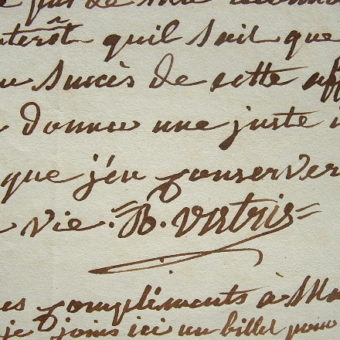 pas de
interêt quil sait que
succès de cette aff
donner une juste i
que j'en conserver
vie. =R. Vatrin=
es compliments à Ma
je joins ici un billet pour